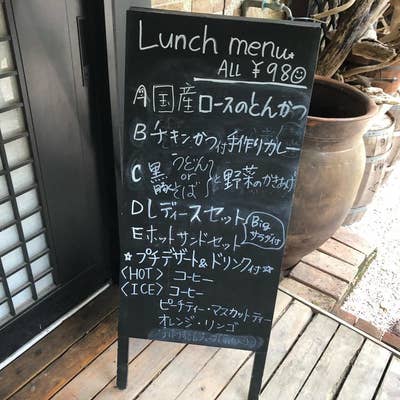 Lunch menu★
ALL ¥980
A 国産ロースのとんかつ
B チキンかつ付手作りカレー
C 黒豚 うどん or そば と野菜のかきあげ
D レディースセット
E ホットサンドセット
Big サラダ付
☆プチデザート&ドリンク付☆
〈HOT〉コーヒー
〈ICE〉コーヒー
ピーチティー・マスカットティー
オレンジ・リンゴ